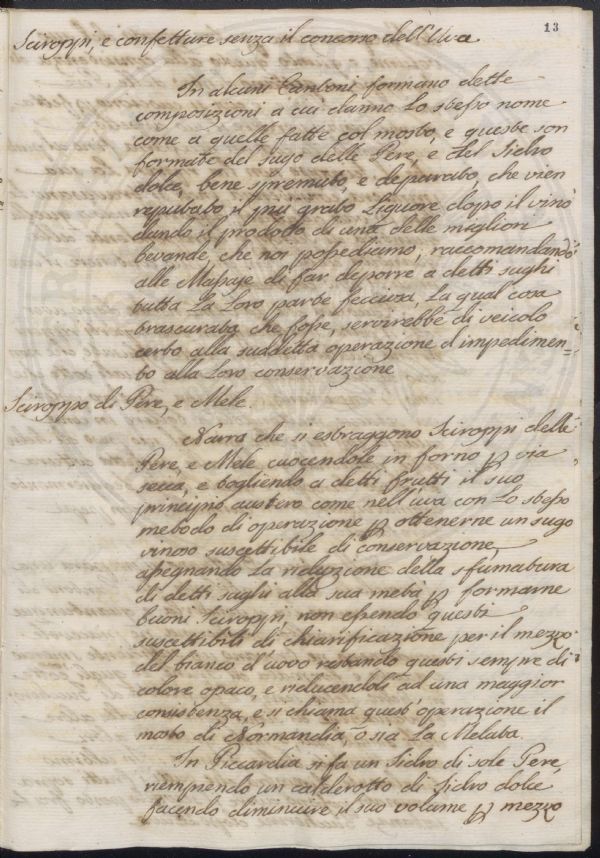 13
Sciroppi, e confetture senza il concorso dell'Uva
In alcuni Cantoni formano dette
composizioni a cui danno Lo stesso nome
come a quelle fatte col mosto, e queste son
formate del sugo delle Pere, e del Sidro
dolce, bene spremuto, e deparato, che vien
reputato il più grato Liquore dopo il vino
dando il prodotto di una delle migliori
bevande, che noi possediamo, raccomandando
alle Massaje di far deporre a detti sughi
tutta La Loro parte fecciosa, La qual cosa
trascurata che fosse, servirebbe di veicolo
certo alla suddetta operazione d'impedimen=
to alla Loro conservazione
Sciroppo di Pere, e Mele
Narra che si estraggono Sciroppi delle
Pere, e Mele cuocendole in forno p via
secca, e togliendo a detti frutti il suo
principio austero come nell'uva con Lo stesso
metodo di operazione p ottenerne un sugo
vinoso suscettibile di conservazione,
assegnando La riduzione della sfumatura
di detti sughi alla sua metà p formarne
buoni Sciroppi, non essendo questi
suscettibili di chiarificazione per il mezzo
del bianco d'uovo restando questi sempre di
colore opaco, e riducendoli ad una maggior
consistenza, e si chiama quest'operazione il
mosto di Normandia o sia La Melata.
In Piccardia si fa un Sidro di sole Pere,
riempendo un calderotto di Sidro dolce
facendo diminuire il suo volume p mezzo